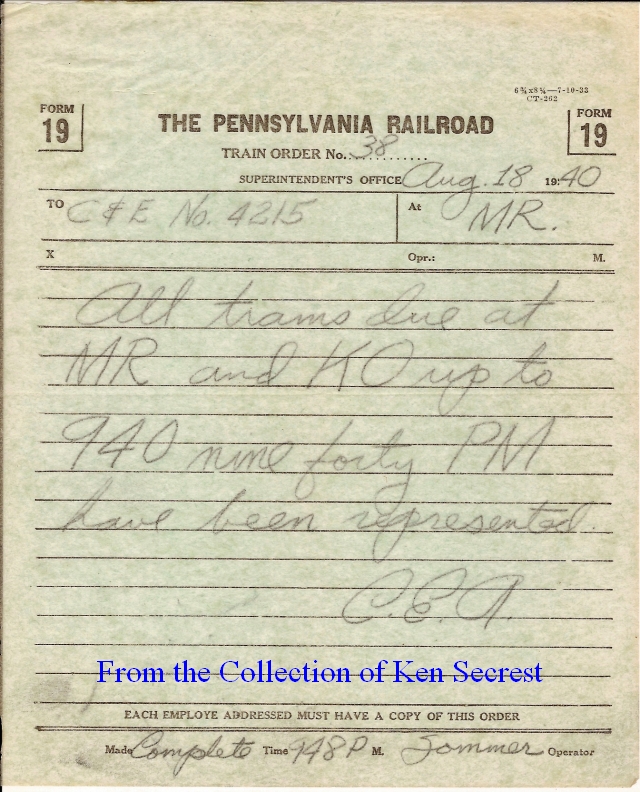 6¾x8¼—7-10-33
CT-262
FORM
19
THE PENNSYLVANIA RAILROAD
FORM
19
TRAIN ORDER No. 38
SUPERINTENDENT'S OFFICE Aug. 18 1940
TO C & E No. 4215 At MR.
X Opr.: M.
All trains due at
MR and KO up to
940 nine forty PM
have been represented.
C.E.A.
From the Collection of Ken Secrest
EACH EMPLOYE ADDRESSED MUST HAVE A COPY OF THIS ORDER
Made Complete Time 948 P M. Sommer Operator